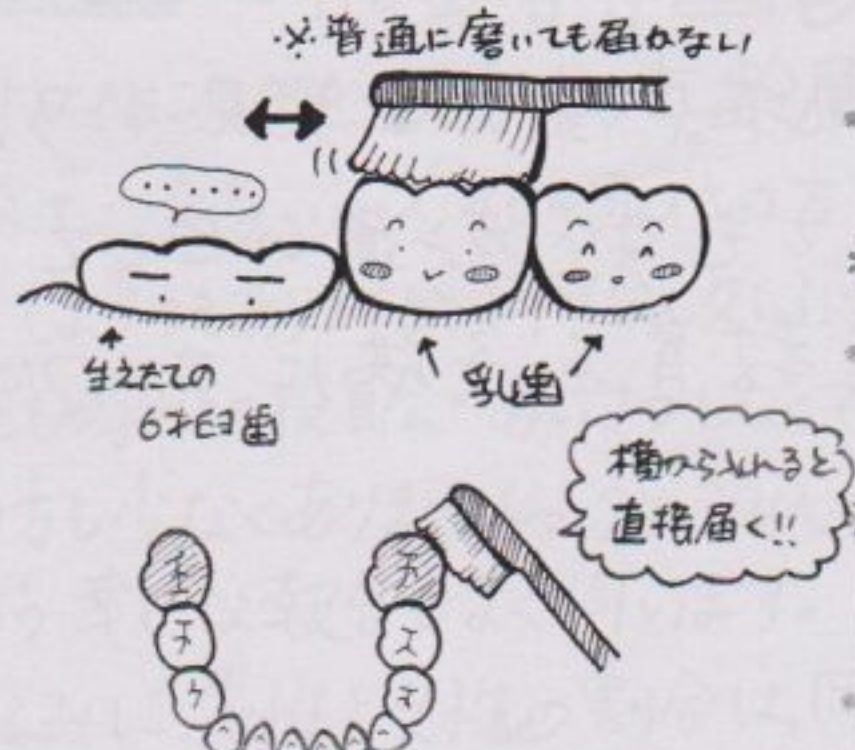 ※普通に磨いても届かない
・・・・・・
生えたての
6才臼歯
乳歯
横から入れると
直接届く!!